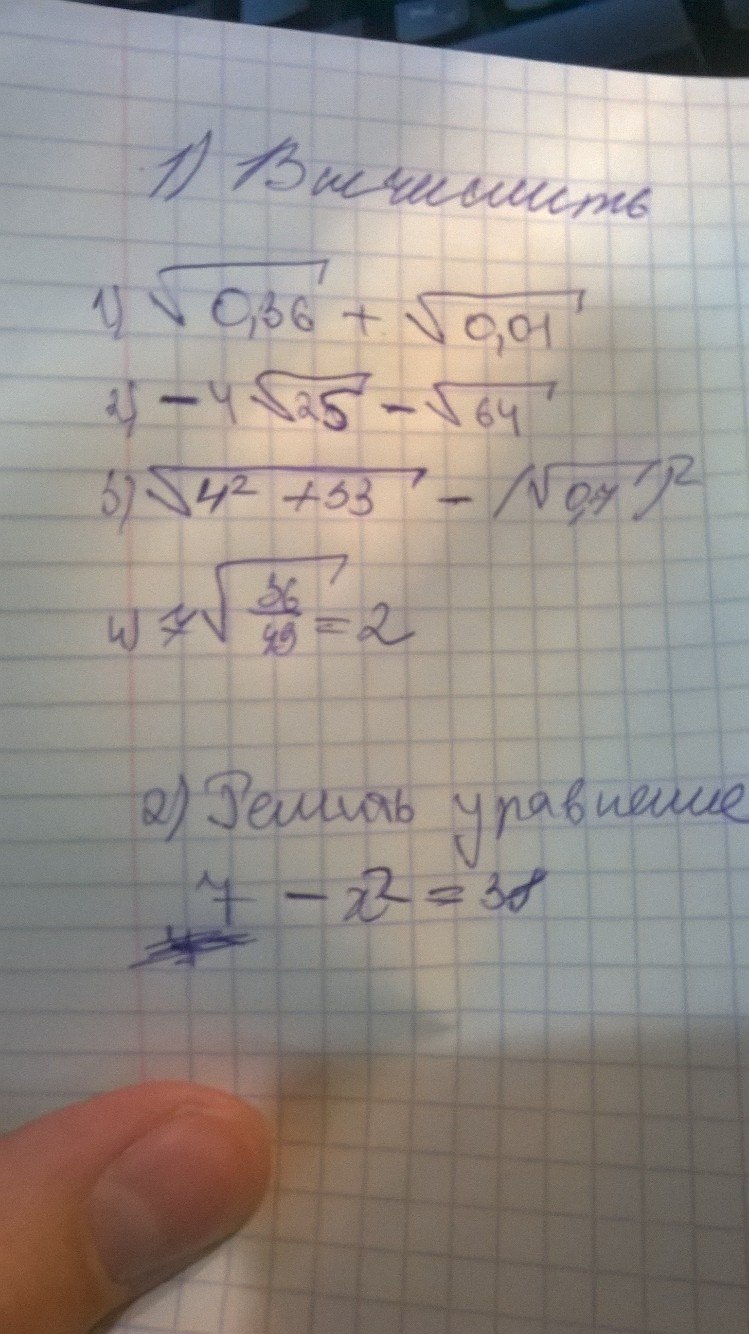 1) Вычислить
1) √0,36 + √0,01
2) -4√25 - √64
3) √4² +33 - (√0,7)²
4) 7√36/49 = 2
2) Решить уравнение
7 - x² = 38